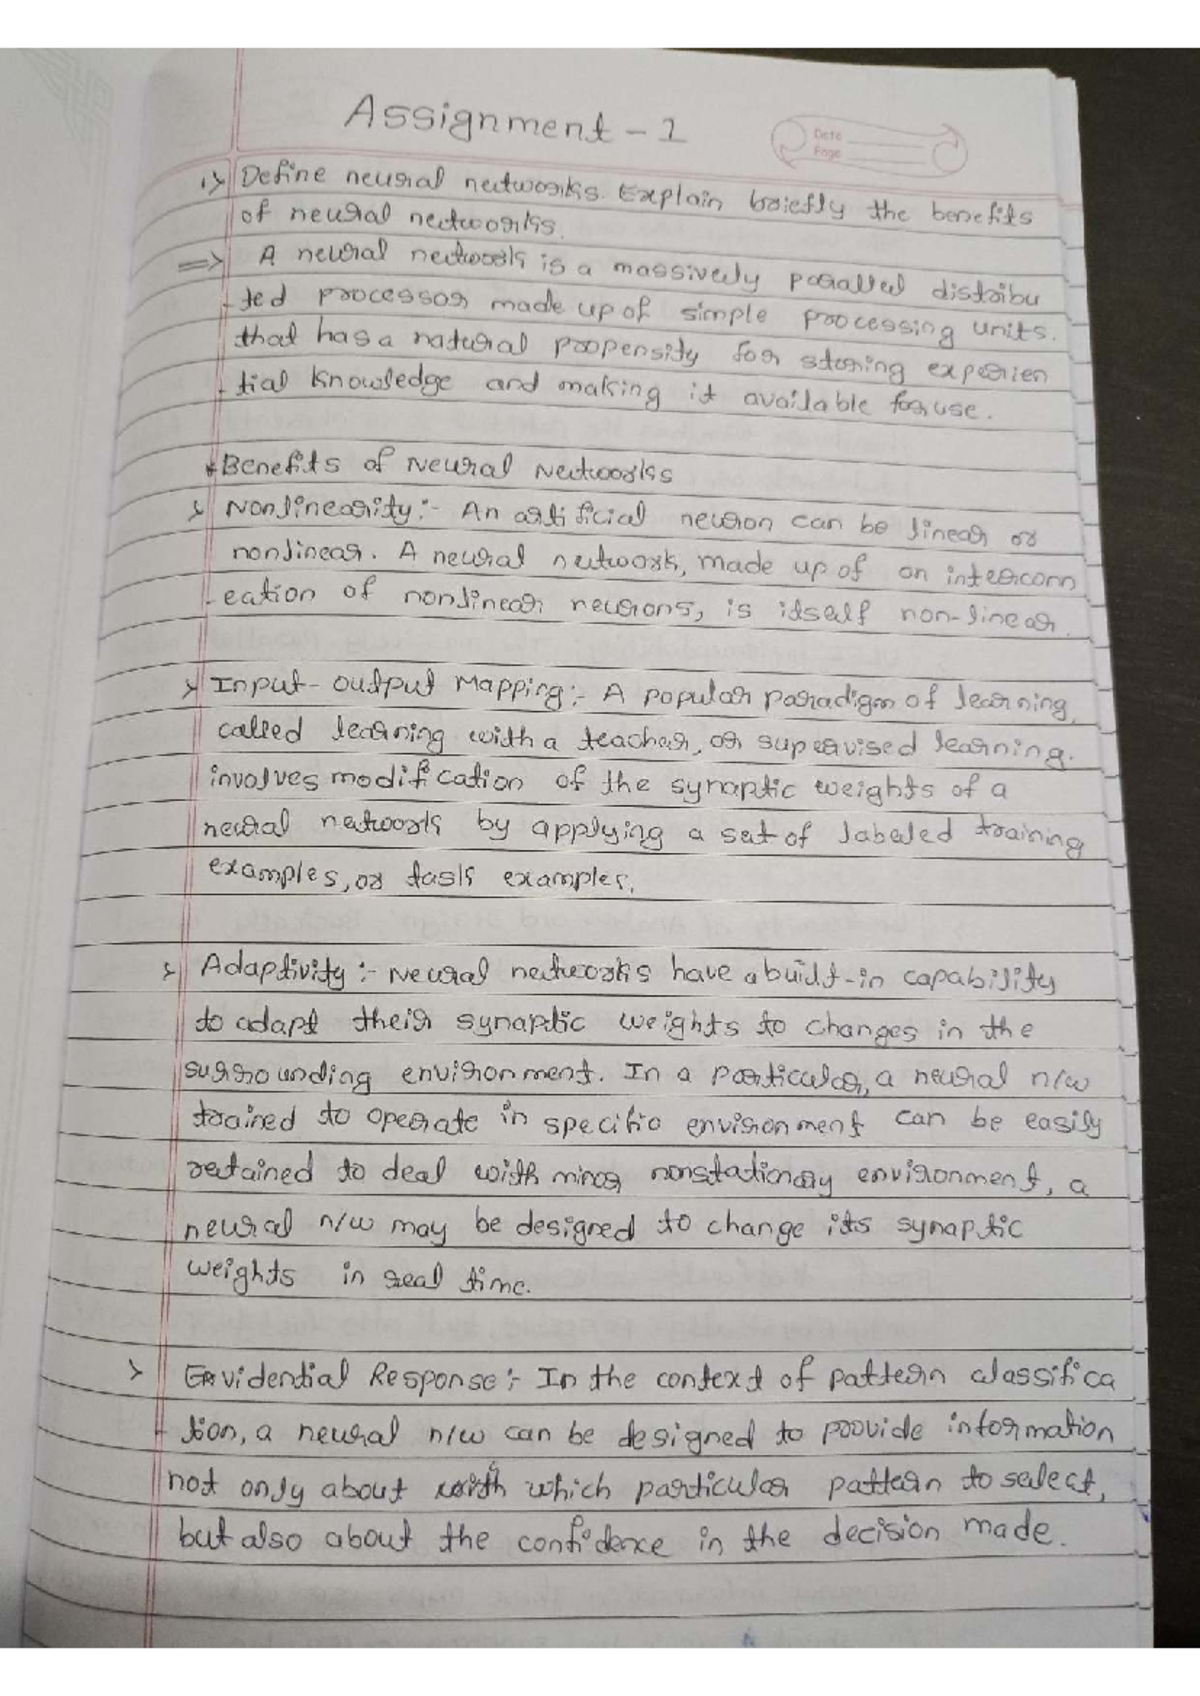 Assignment - 1
Date
Page
1> Define neural networks. Explain briefly the benefits
of neural networks.
=> A neural network is a massively parallel distribu
-ted processor made up of simple processing units.
that has a natural propensity for storing experien
-tial knowledge and making it available for use.
*Benefits of Neural Networks
> Nonlinearity:- An artificial neuron can be linear or
nonlinear. A neural network, made up of an interconn
-ection of nonlinear neurons, is itself non-linear.
> Input-output Mapping:- A popular paradigm of learning,
called learning with a teacher, or supervised learning.
involves modification of the synaptic weights of a
neural network by applying a set of labeled training
examples, or task examples.
> Adaptivity :- Neural networks have a built-in capability
to adapt their synaptic weights to changes in the
surrounding environment. In a particular, a neural n/w
trained to operate in specific environment can be easily
retained to deal with minor nonstationary environment, a
neural n/w may be designed to change its synaptic
weights in real time.
> Evidential Response:- In the context of pattern classifica
-tion, a neural n/w can be designed to provide information
not only about which particular pattern to select,
but also about the confidence in the decision made.